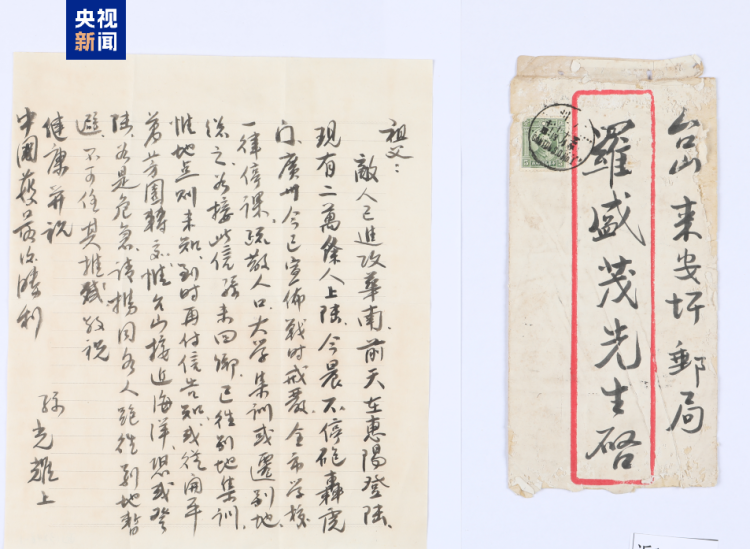 央视
新闻
祖父：
敵人已進攻華南，前天在惠陽登陸，
現有二萬餘人上陸，今晨不停砲轟虎
門，廣州今已宣佈戰時戒嚴，全市学校
一律停課，疏散人口，大学集訓或遷別地
從之，若接此信孫未回鄉，已往別地集訓，
惟地点則未知，到時再付信告知，或從開平
芳園轉交，惟台山接近海洋，恐或登
陸，若是危急，請揚同各人跑往別地暫
避，不可任其摧殘，敬祝
健康并祝
中國獲最後勝利
孫光雄上
台山来安圩郵局
羅盛茂先生啓